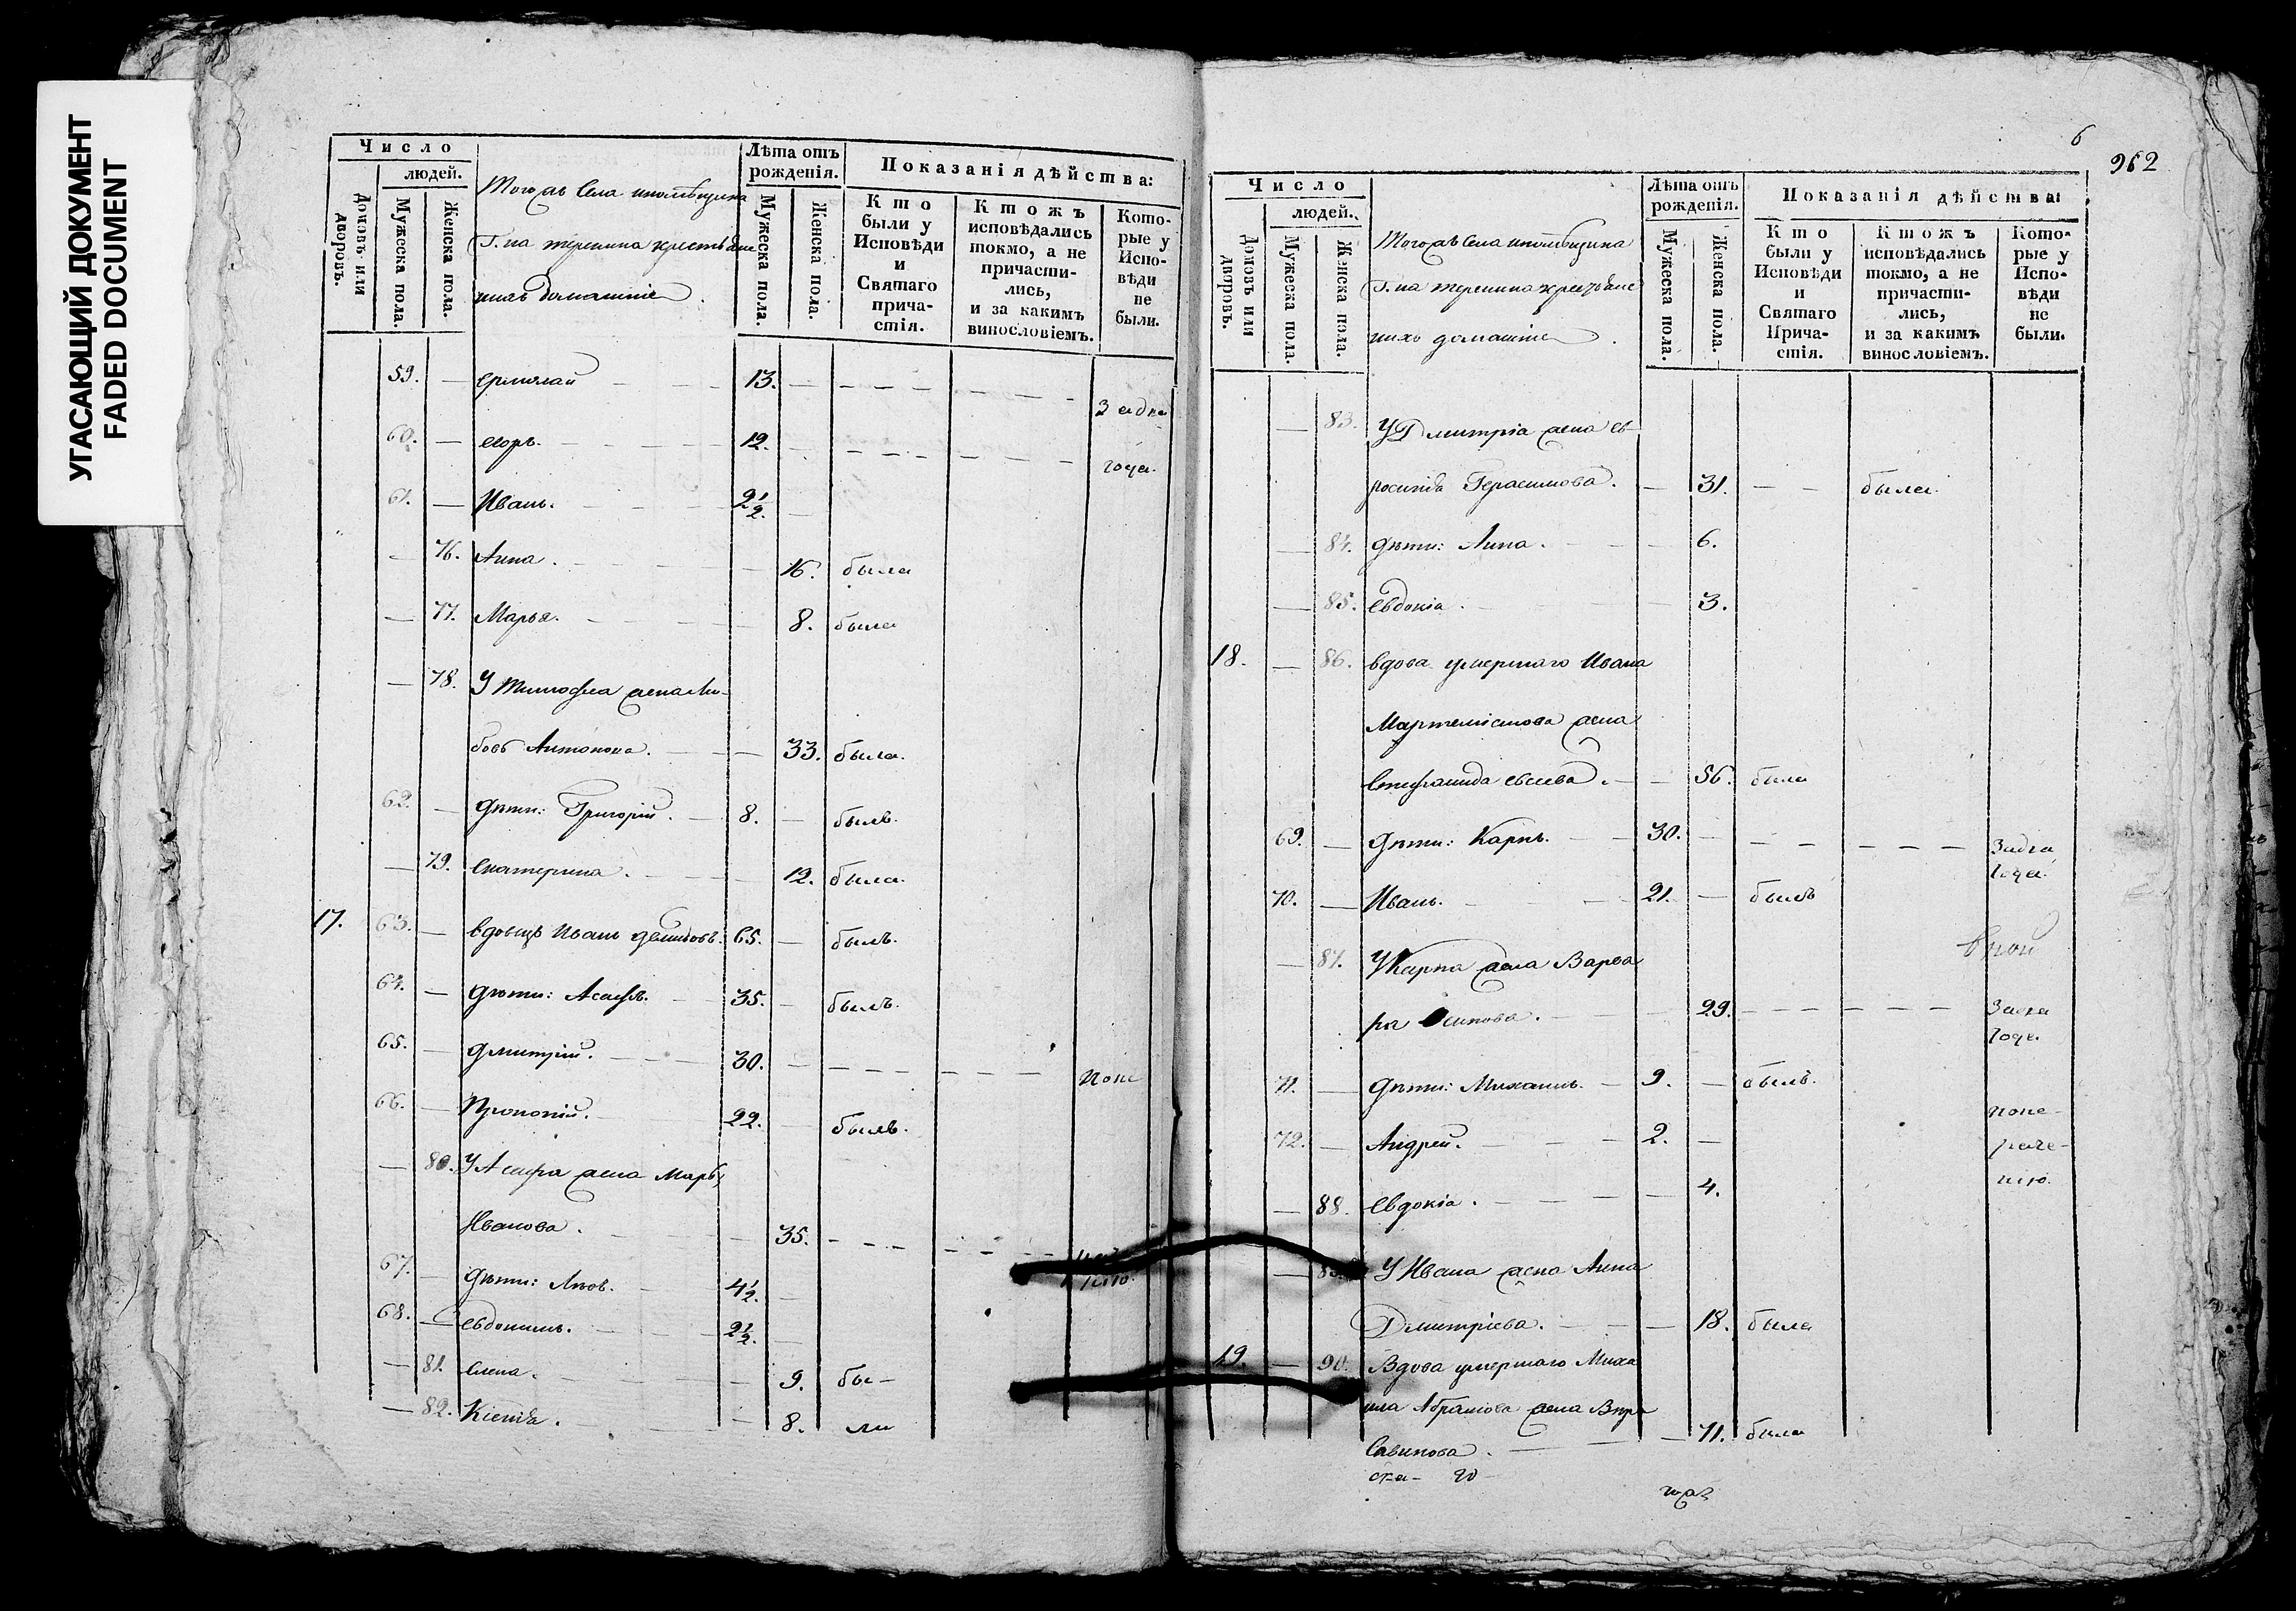 УГАСАЮЩИЙ ДОКУМЕНТ
FADED DOCUMENT
Число
людей.
Домовъ или дворовъ.
Мужеска пола.
Женска пола.
Тогожъ Села помѣщика
Г.на терешина крестьяне
ихъ домашніе
Лѣта отъ рожденія.
Мужеска пола.
Женска пола.
Показанія дѣйства:
Кто были у Исповѣди и Святаго причастія.
Ктожъ исповѣдались токмо, а не причастились, и за какимъ винословіемъ.
Которые у Исповѣди не были.
59. — Ермолай 13. —
За дка
60. — Егоръ. 12. —
года.
61. — Иванъ. 2 1/2. —
— 76. Анна. — 16. была
— 77. Марья. — 8. была
— 78. У Тимофея жена Лю-
бовь Антонова. — 33. была.
62. — дѣти: Григорій. 8. — былъ.
— 79. Екатерина. — 12. была.
17. 63. — вдовецъ Иванъ Демидовъ. 65. — былъ.
64. — дѣти: Асафъ. 35. — былъ.
65. — Дмитрій. 30. — поне
66. — Прокопій. 22. — былъ.
— 80. У Асафа жена Марья
Иванова. — 35.
нію.
67. — дѣти: Яковъ. 4 1/2. —
68. — Евдокимъ. 2 1/2. —
— 81. Елена. — 9. бы-
— 82. Ксенія. — 8. ли
6
962
Число
людей.
Домовъ или дворовъ.
Мужеска пола.
Женска пола.
Тогожъ Села помѣщика
Г.на терешина крестьяне
ихъ домашніе
Лѣта отъ рожденія.
Мужеска пола.
Женска пола.
Показанія дѣйства:
Кто были у Исповѣди и Святаго Причастія.
Ктожъ исповѣдались токмо, а не причастились, и за какимъ винословіемъ.
Которые у Исповѣди не были.
— 83. У Дмитрія жена Ев-
росинія Герасимова. — 31. — была.
— 84. дѣти: Анна. — 6.
— 85. Евдокіа. — 3.
18. — 86. вдова умершаго Ивана
жена
Степанида Евсева. — 56. была
69. — дѣти: Карпъ. 30. — За дка
года.
70. — Иванъ. 21. — былъ
— 87. У Карпа жена Варва
ра Осипова. — 29. За дка
года.
71. — дѣти: Михаилъ. 9. — былъ.
поне-
72. — Андрей. 2. —
раче-
нію.
— 88. Евдокіа. — 4.
— 89. У Ивана жена Анна
Дмитріева. — 18. была
19. — 90. Вдова умершаго Миха
ила Абрамова жена Вѣра
Савинова. — 71. была